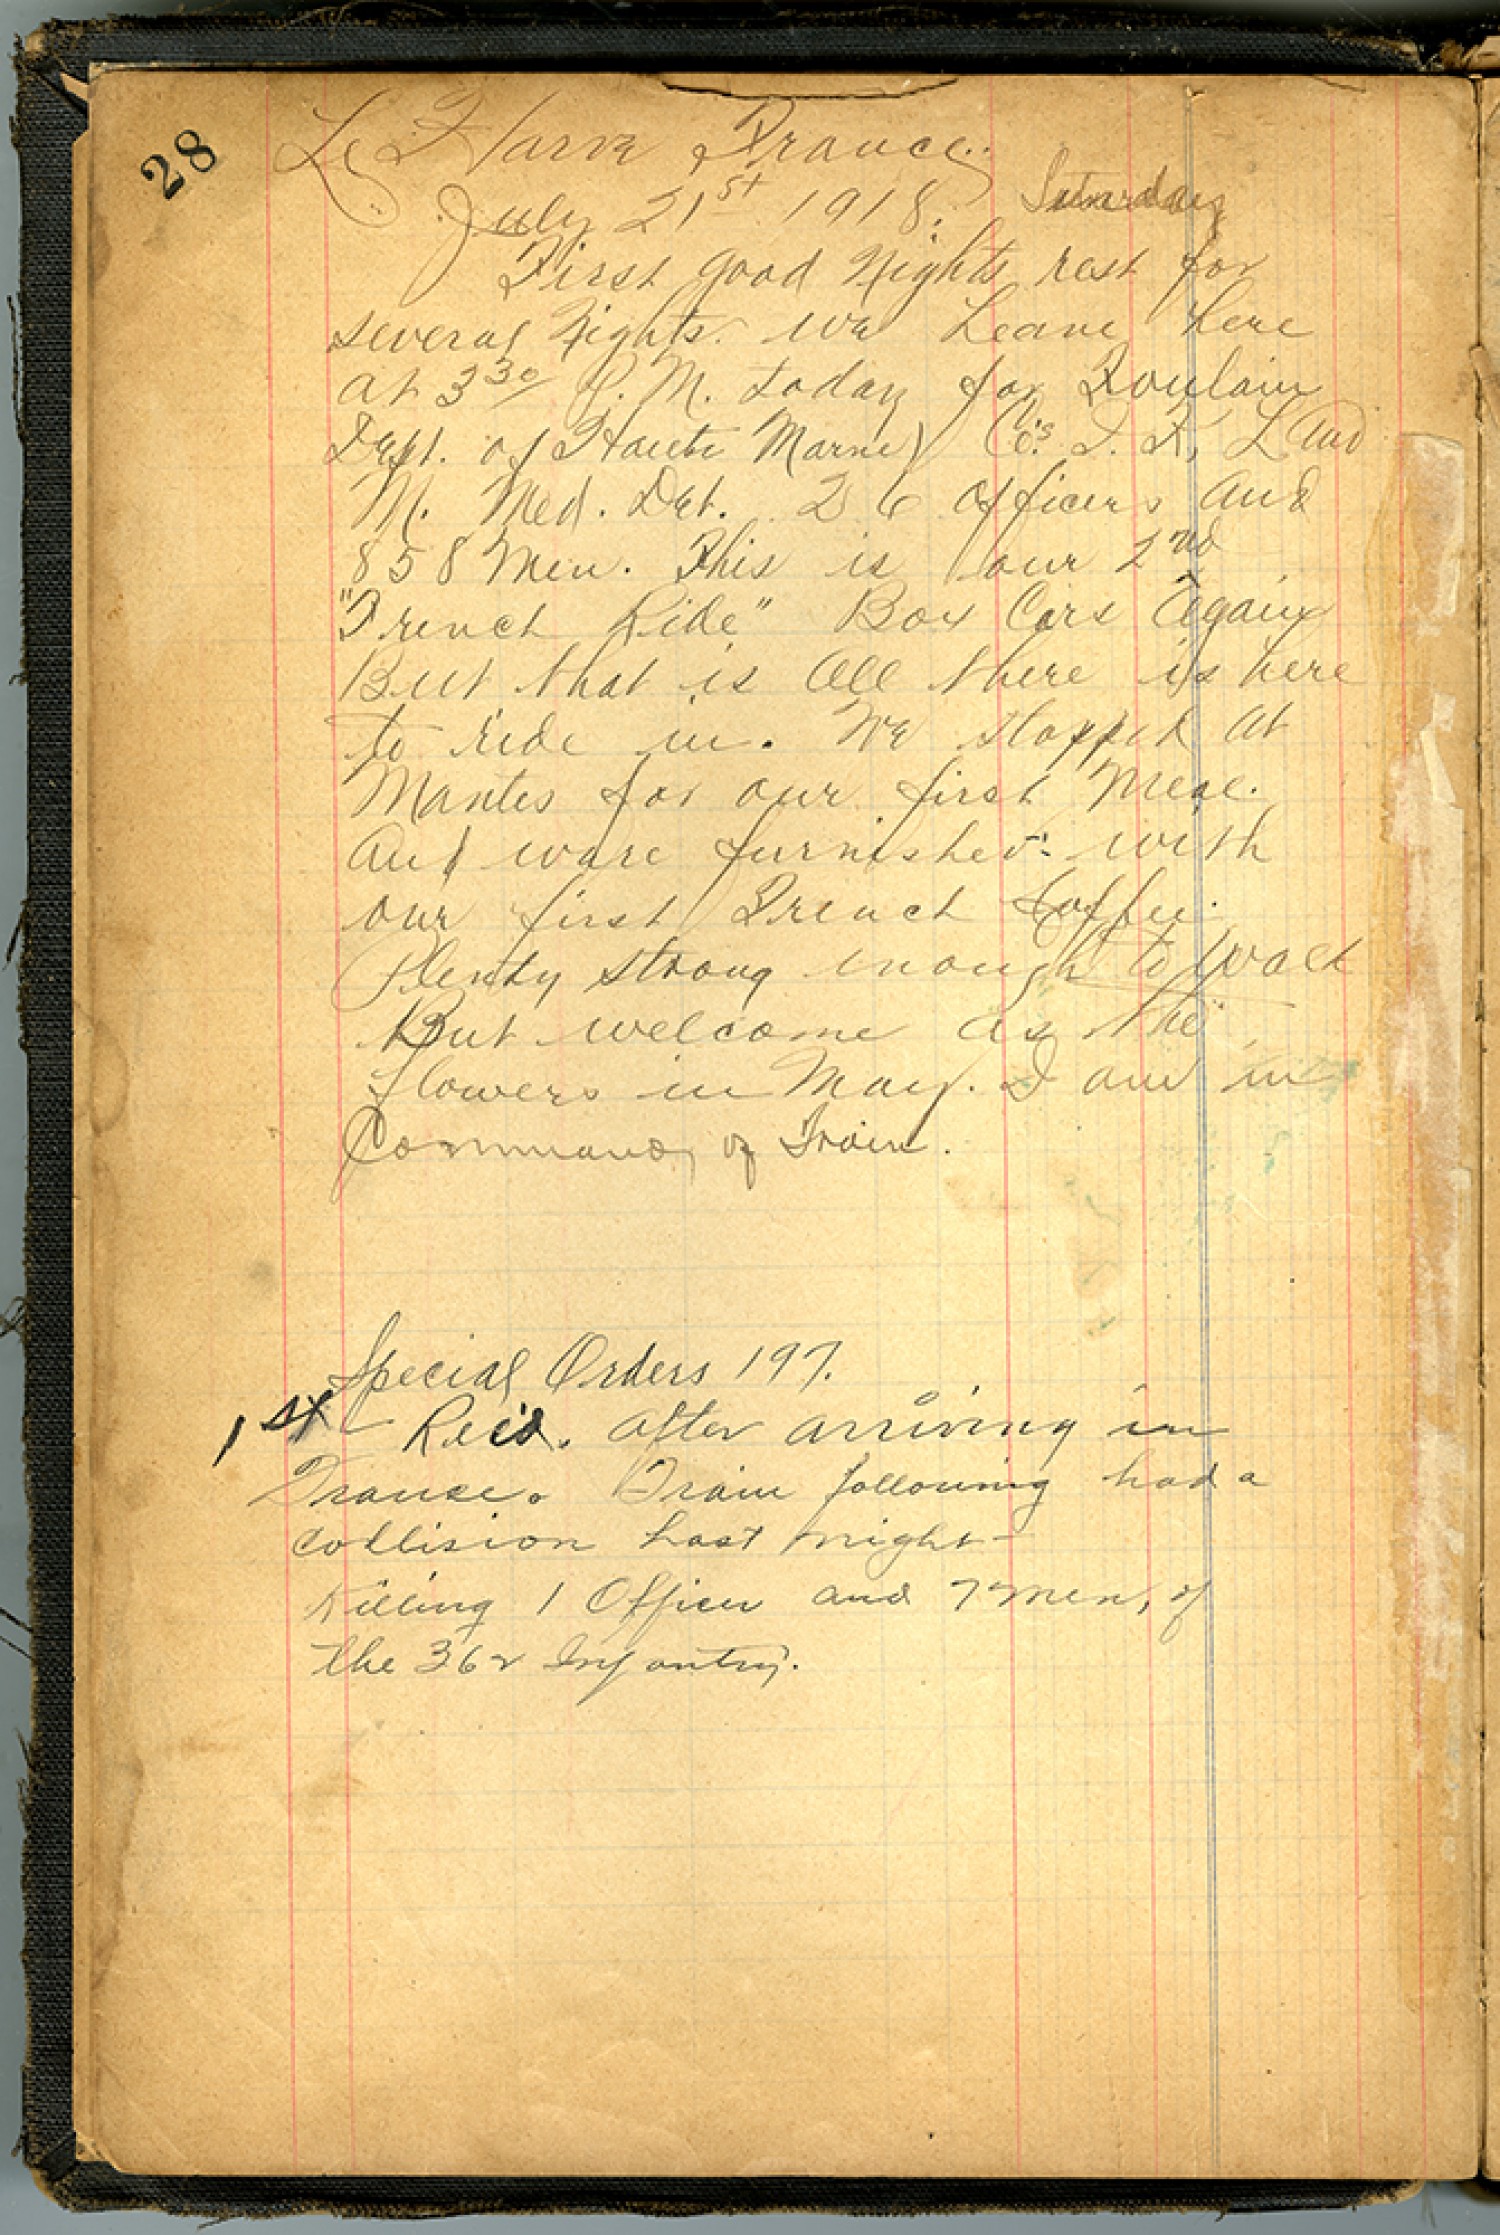 28
Le Havre France.
July 21st 1918. Saturday
First good Nights rest for
several Nights. We Leave here
at 3 30/ P.M. today for Roulain
Dept. of Haute Marne) Co's. I. K, L and
M. Med. Det. 26 Officers and
858 Men. This is our 2nd
"French Ride" Box Cars Again
But that is All there is here
to ride in. We stopped at
Mantes for our first Meal.
And ware furnished with
our first French Coffee.
Plenty strong enough to
But welcome as the
flowers in May. I am in
Command of Train.
Special Orders 197.
1st Reid. After arriving in
France. Train following had a
collision Last night-
Killing 1 Officer and 7 men, of
the 362 Infantry.